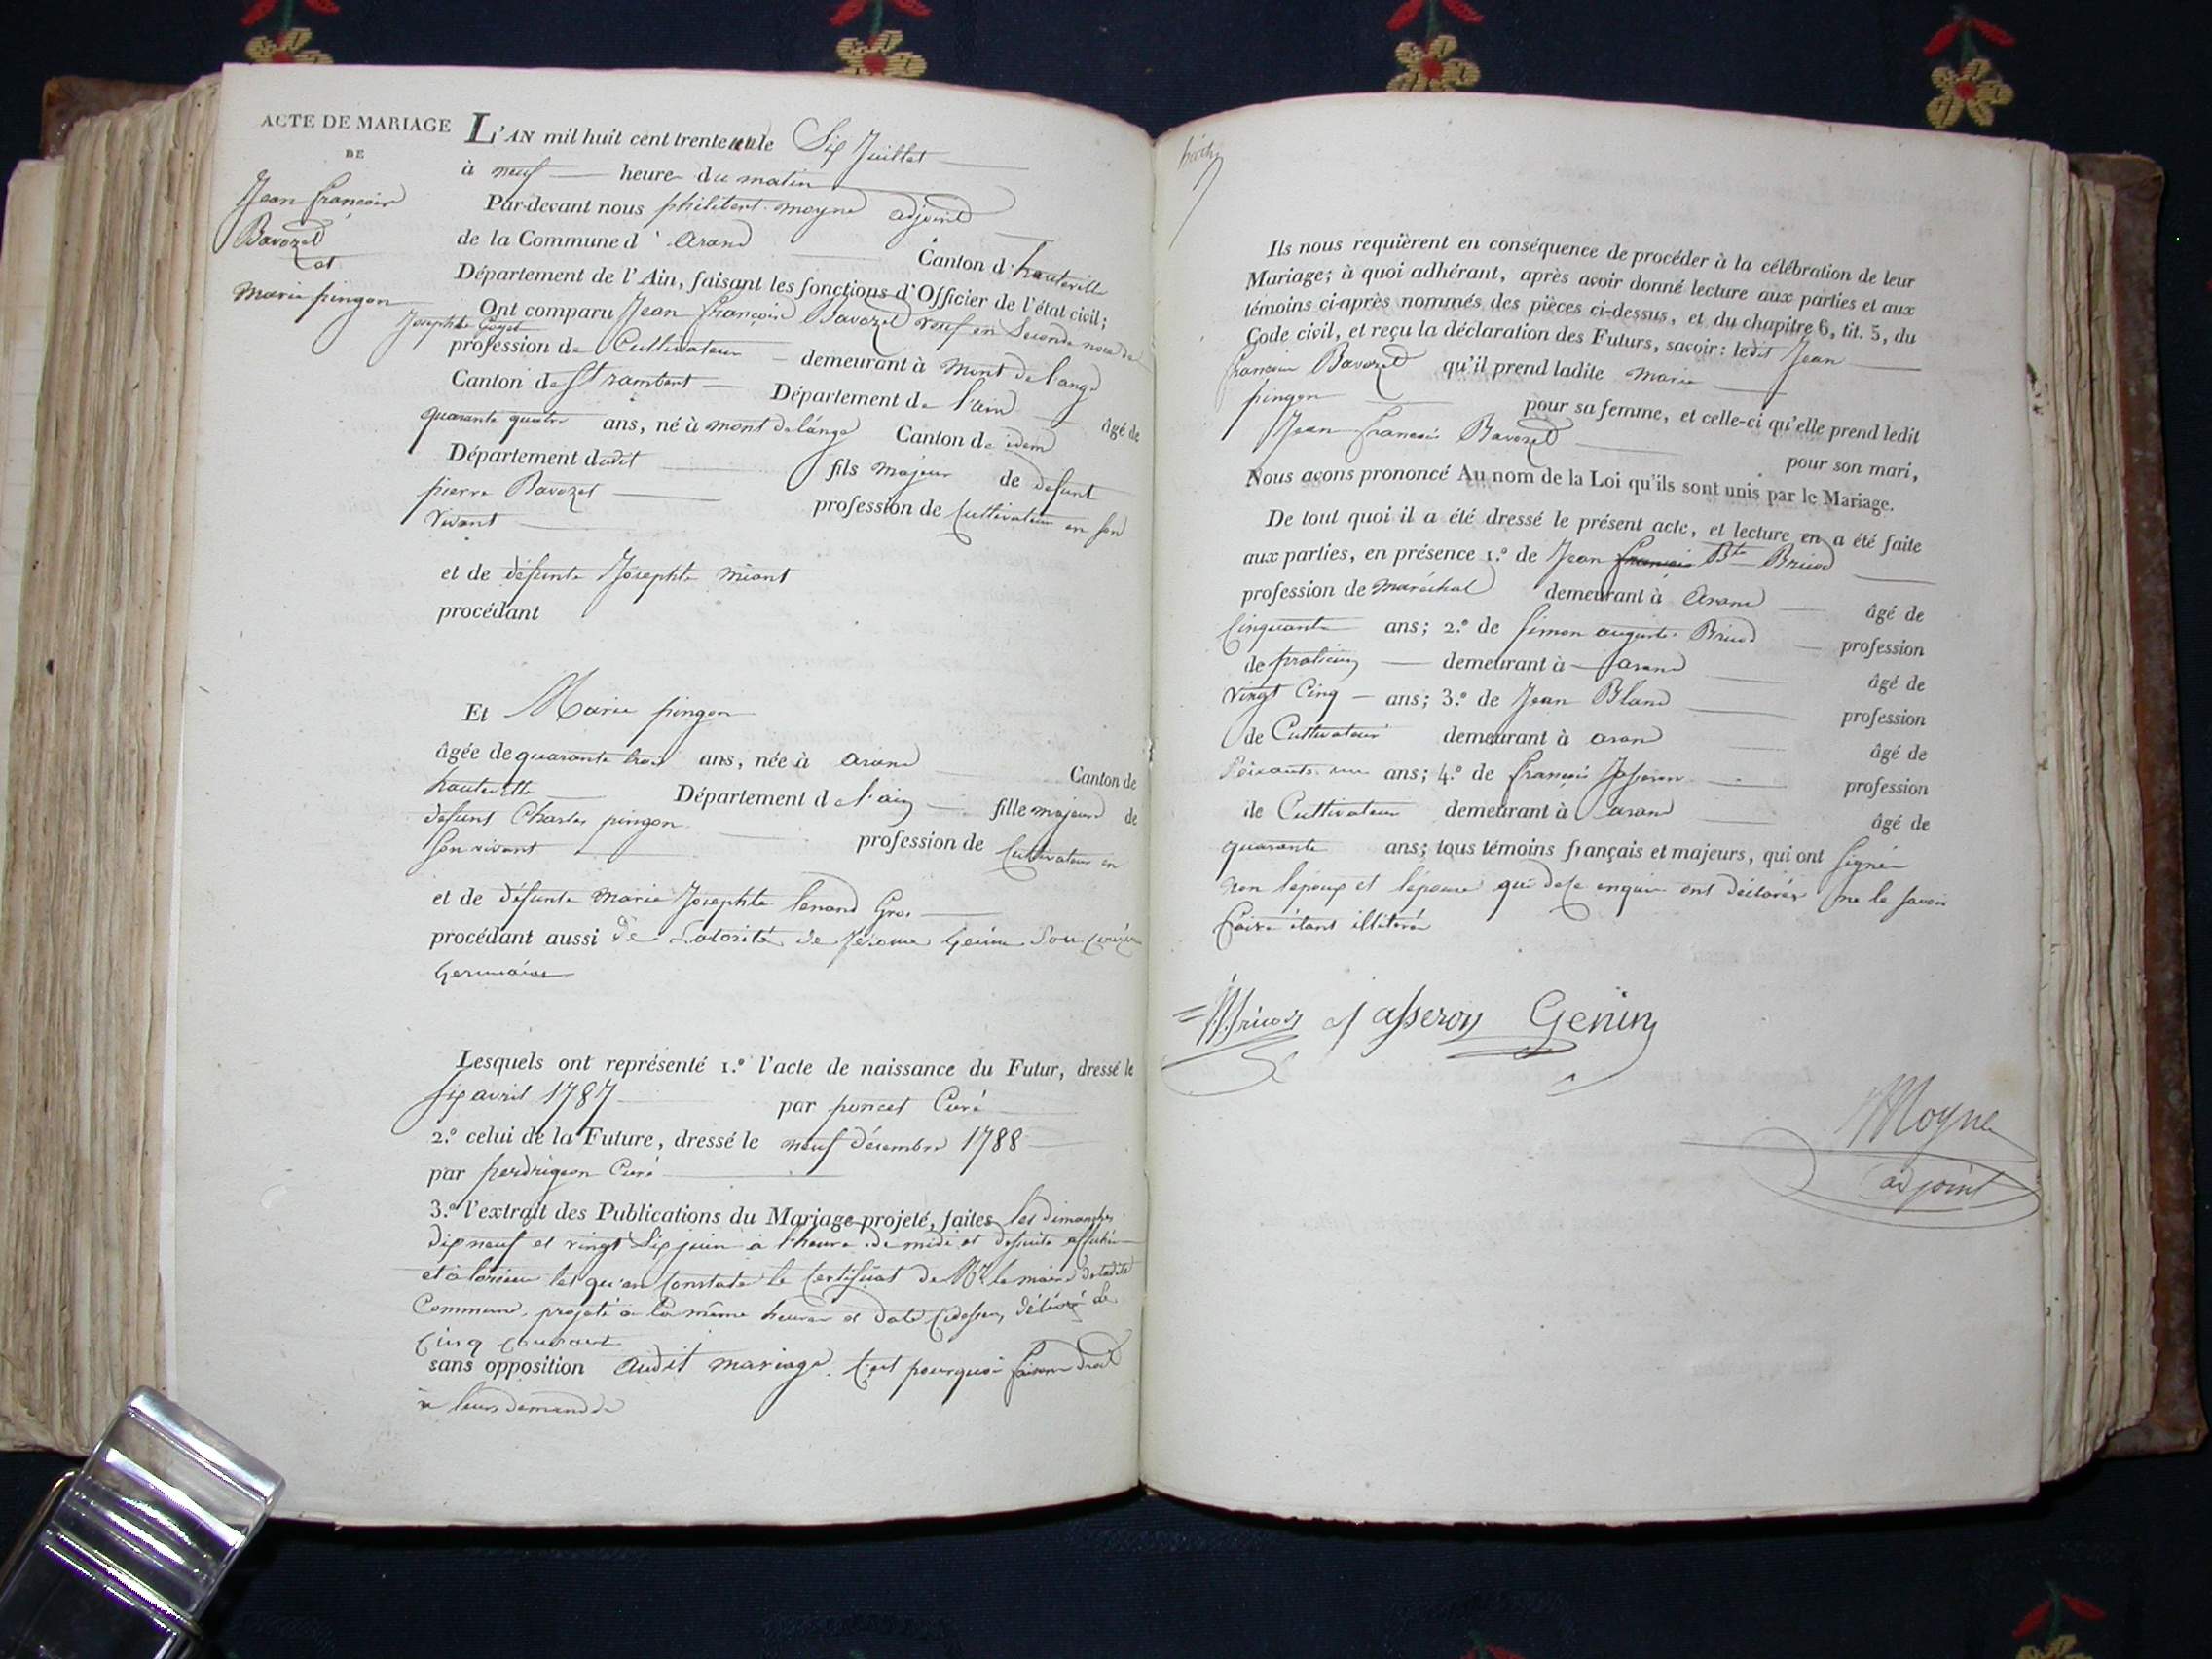 ACTE DE MARIAGE
DE
Jean françois
Bavozet
et
Marie pingon
L'AN mil huit cent trente un le Six Juillet
à neuf heure du matin
Par-devant nous philibert moyne adjoint
de la Commune d' arand Canton d'hauteville
Département de l'Ain, faisant les fonctions d'Officier de l'état civil;
Ont comparu Jean françois Bavozet veuf en Seconde noce de
Josephte Goyet
profession de Cultivateur demeurant à Mont de lange
Canton de St rambert Département de l'ain âgé de
quarante quatre ans, né à mont de lange Canton de idem
Département dudit fils majeur de defunt
pierre Bavozet profession de Cultivateur en son
vivant
et de défunte Josephte miant
procédant
Et Marie pingon
âgée de quarante trois ans, née à arand Canton de
hauteville Département de l'ain fille majeure de
defunt Charles pingon profession de Cultivateur en
son vivant
et de défunte Marie Josephte Gros
procédant aussi de Lotorité de Jérome Genin Son
Germain
Lesquels ont représenté 1.º l'acte de naissance du Futur, dressé le
six avril 1787 par poncet Curé
2.º celui de la Future, dressé le neuf décembre 1788
par perdrigeon Curé
3.º l'extrait des Publications du Mariage projeté, faites les dimanches
dix neuf et vingt Six juin à l'heure de midi et
tel qu'en Constate le Certificat de Mr le maire de ladite
Commune, projeté a la même heure et date délivré le
cinq courant
sans opposition audit mariage. C'est pourquoi faisant droit
a leurs demande
Ils nous requièrent en conséquence de procéder à la célébration de leur
Mariage; à quoi adhérant, après avoir donné lecture aux parties et aux
témoins ci-après nommés des pièces ci-dessus, et du chapitre 6, tit. 5, du
Code civil, et reçu la déclaration des Futurs, savoir: ledit Jean
francois Bavozet qu'il prend ladite marie
pingon pour sa femme, et celle-ci qu'elle prend ledit
Jean francois Bavozet pour son mari,
Nous avons prononcé Au nom de la Loi qu'ils sont unis par le Mariage.
De tout quoi il a été dressé le présent acte, et lecture en a été faite
aux parties, en présence 1.º de Jean françois Bte Bricod
profession de maréchal demeurant à arand âgé de
Cinquante ans; 2.º de Simon auguste Bricod profession
de praticien demeurant à arand âgé de
vingt Cinq ans; 3.º de Jean Bland profession
de Cultivateur demeurant à arand âgé de
Soixante un ans; 4.º de françois Jasseron profession
de Cultivateur demeurant à arand âgé de
quarante ans; tous témoins français et majeurs, qui ont signé
non lepoux et lepouse qui de ce enquis ont déclarés ne le savoir
faire étant illitéré
Bricod Jasseron Genin
Moyne
adjoint